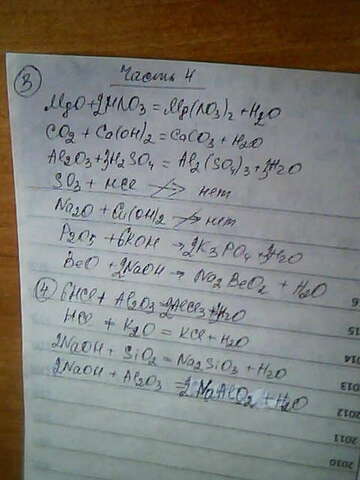 Часть 4
③
MgO + 2HNO3 = Mg(NO3)2 + H2O
CO2 + Ca(OH)2 = CaCO3 + H2O
Al2O3 + 3H2SO4 = Al2(SO4)3 + 3H2O
SO3 + HCl -/-> нет
Na2O + Cu(OH)2 -/-> нет
P2O5 + 6KOH → 2K3PO4 + 3H2O
BeO + 2NaOH → Na2BeO2 + H2O
④ 6HCl + Al2O3 = 2AlCl3 + 3H2O
HCl + K2O = KCl + H2O
2NaOH + SiO2 = Na2SiO3 + H2O
2NaOH + Al2O3 = 2NaAlO2 + H2O
16
15
2014
2013
2012
2011
2010